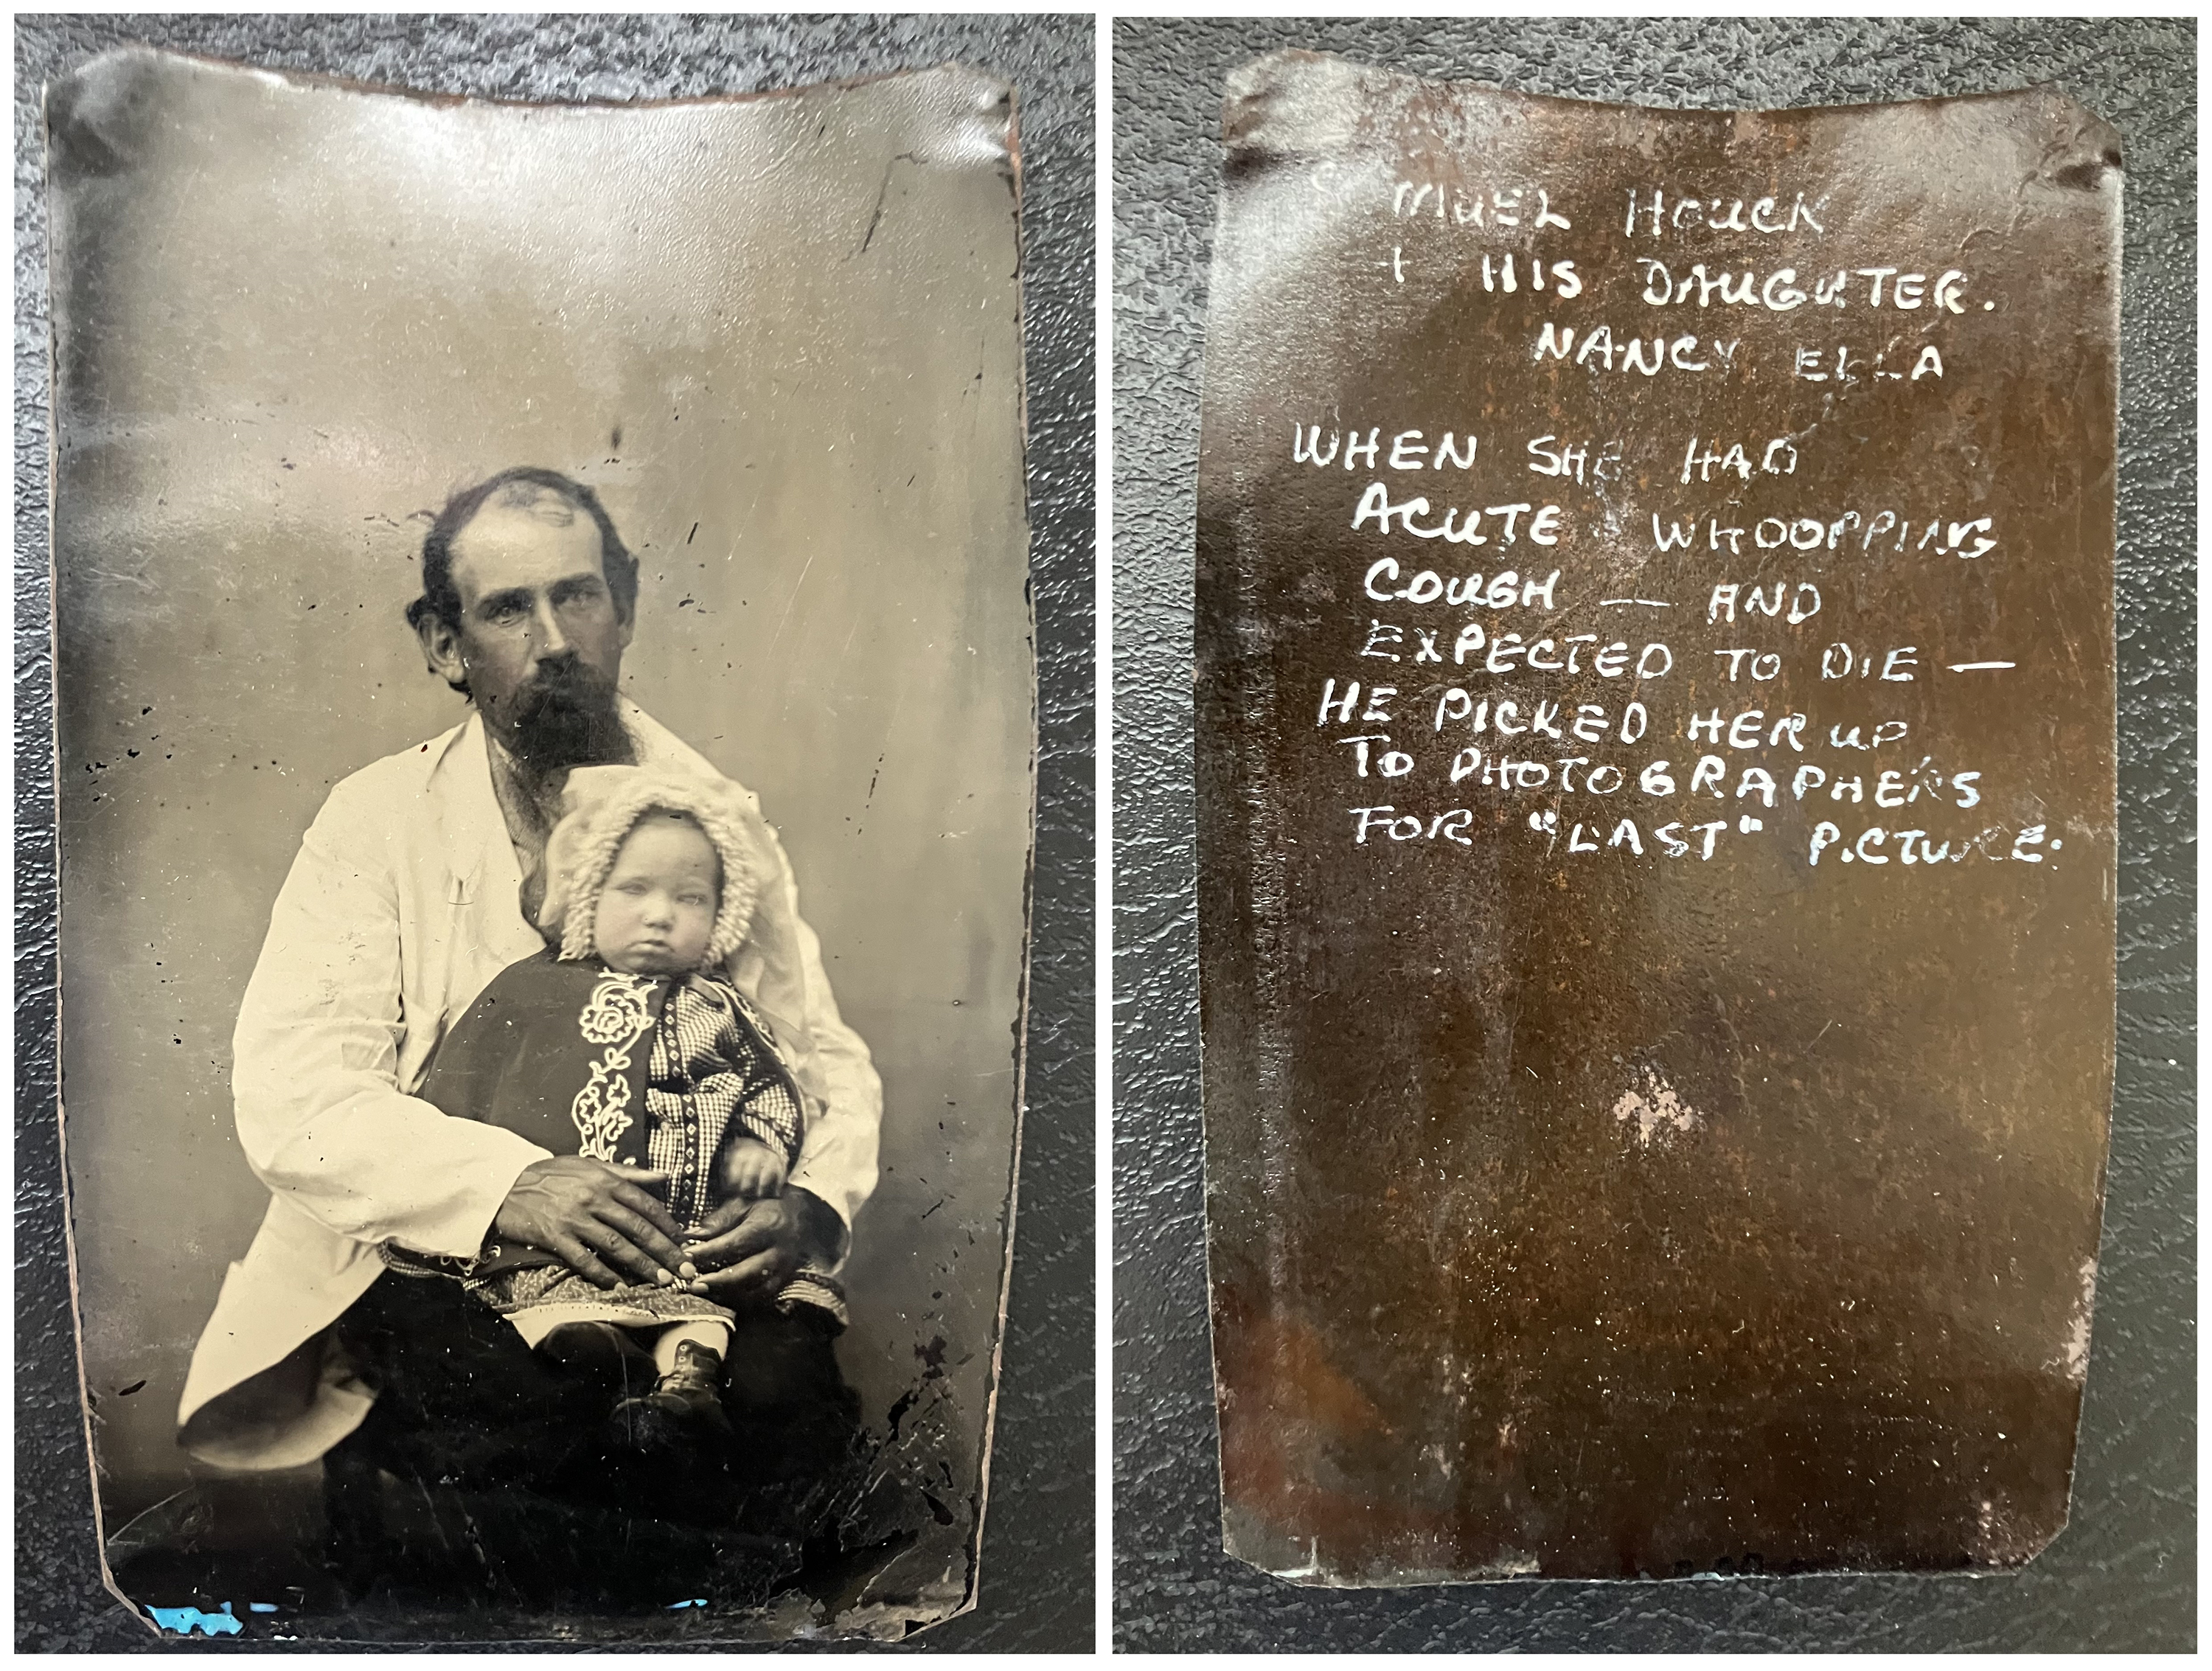 HOUCK
+ HIS DAUGHTER.
NANCY ELLA
WHEN SHE HAD
ACUTE WHOOPPING
COUGH — AND
EXPECTED TO DIE —
HE PICKED HER UP
TO PHOTOGRAPHERS
FOR "LAST" PICTURE.